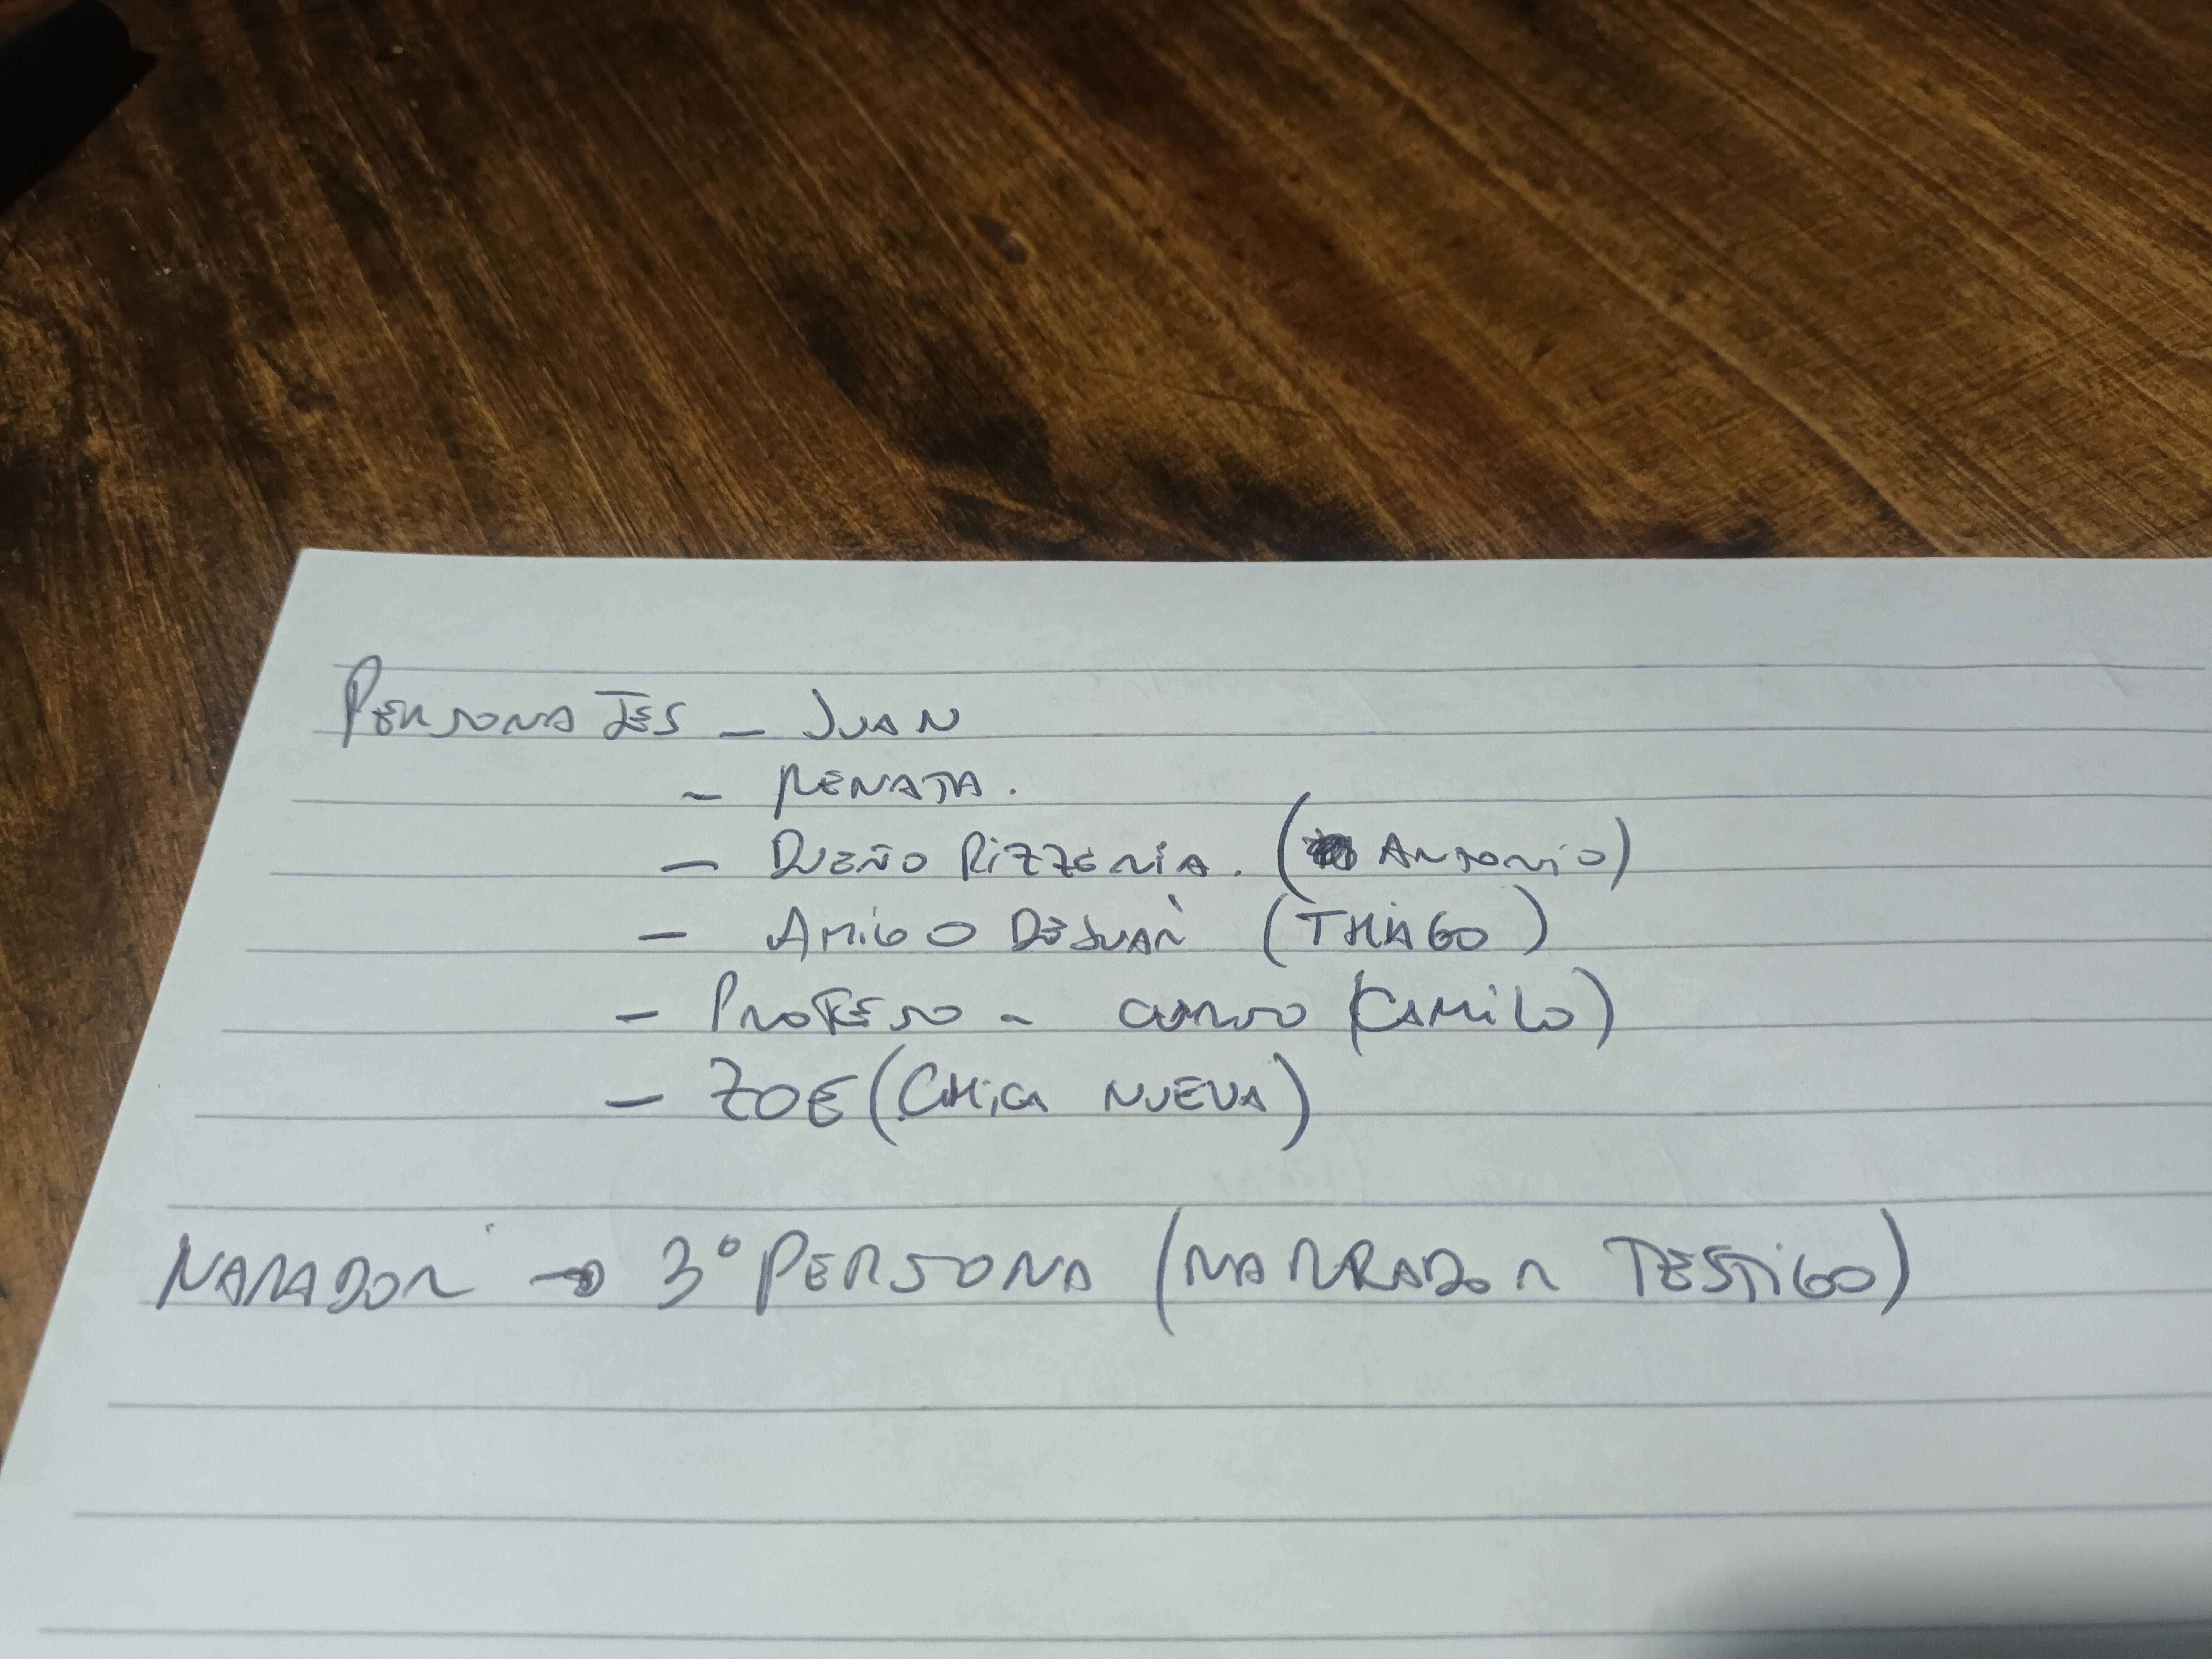 PERSONAJES - JUAN
- RENATA.
- DUEÑO PIZZERÍA. (ANTONIO)
- AMIGO DE JUAN (THIAGO)
- PROFESO - CURSO (CAMILO)
- ZOE (CHICA NUEVA)
NARADOR → 3° PERSONA (NARRADOR TESTIGO)